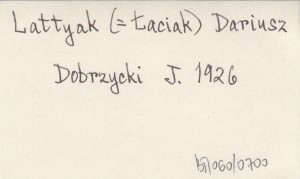 Lattyak (= Łaciak) Dariusz
Dobrzycki J. 1926